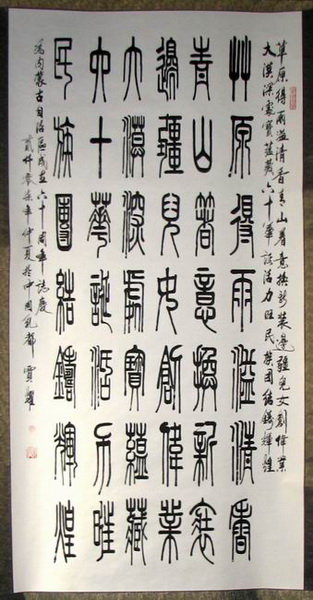 草原得雨溢清香青山着意換新裝邊疆兒女創偉業
大漠深處寶蘊藏六十華誕活力旺民族团结鑄輝煌
艸原得雨溢清香
青山著意換新裝
邊疆兒女創偉業
大漠深處寶蘊藏
六十華誕活力旺
民族團結鑄輝煌
為内蒙古自治區成立六十周年誌慶
貳什零柒年仲夏於中国乳都